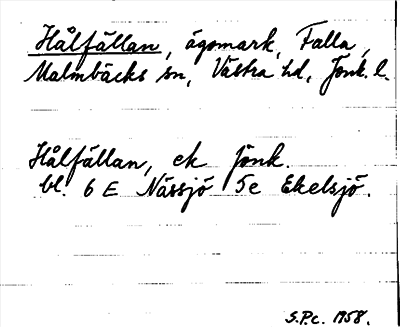 Hålfällan, ägomark, Falla,
Malmbäcks sn, Västra hd, Jönk. l.
Hålfällan, ek Jönk.
bl. 6 E Nässjö 5e Ekelsjö.
S.P.c. 1958.